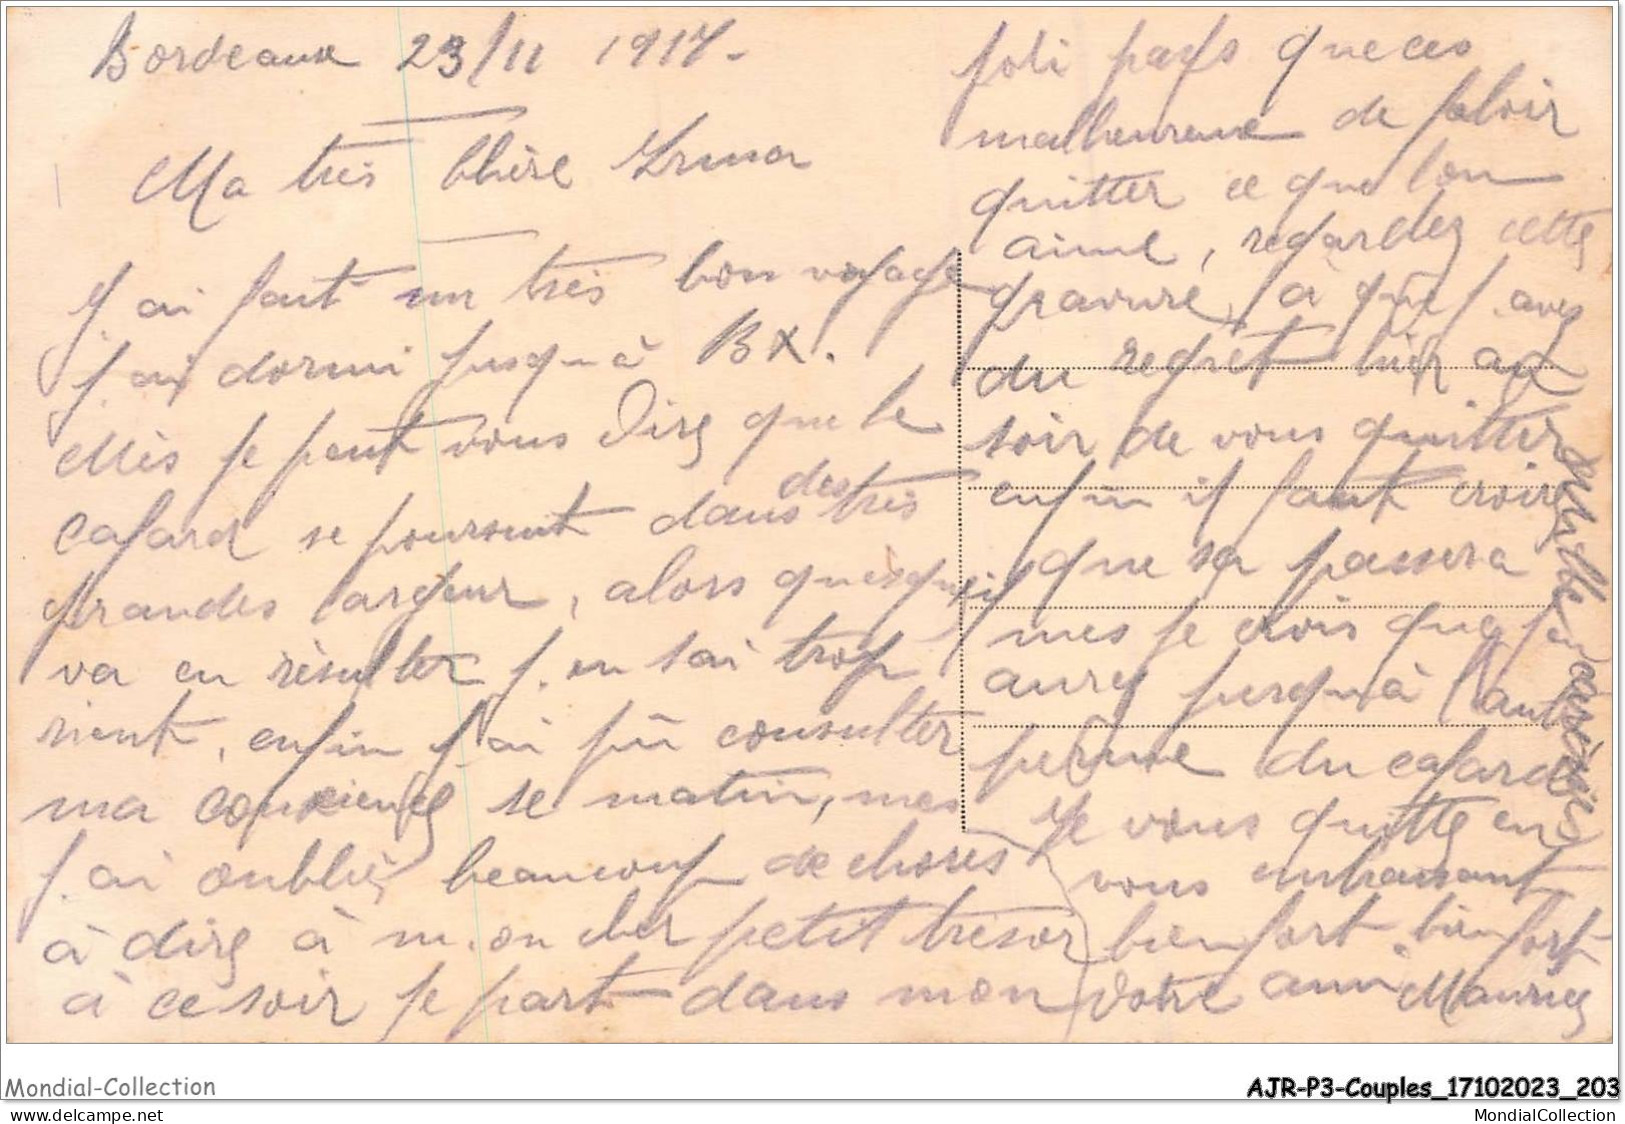 Bordeaux 23/11 1917.
Ma très Chère Irma
J. ai fait un très bon voyage
j. ai dormi jusqu'à BX.
Mès je peut vous Dire que le
Cafard se poursuit dans des très
grandes largeur, alors quesqu'il
va en rèsulter j. en sai trop
rient, enfin j'ai pû consulter
ma consience se matin, mes
j. ai oublièr beaucoup de choses
à dire à m.on cher petit trèsor
à ce soir je part dans mon
joli pays que ces
malheureux de faloir
quitter ce que l'on
aime, regardez cette
gravure, à quel j. avez
du regrèt hièr au
soir de vous quitter
enfin il faut croire
que sa passera
mes je crois que j'en
aurez jusqu'à l'aut
perme du cafard
Je vous quitte en
vous embrassant
bien fort, bien fort
Votre ami Maurice
Mondial-Collection
AJR-P3-Couples_17102023_203
www.delcampe.net
MondialCollection